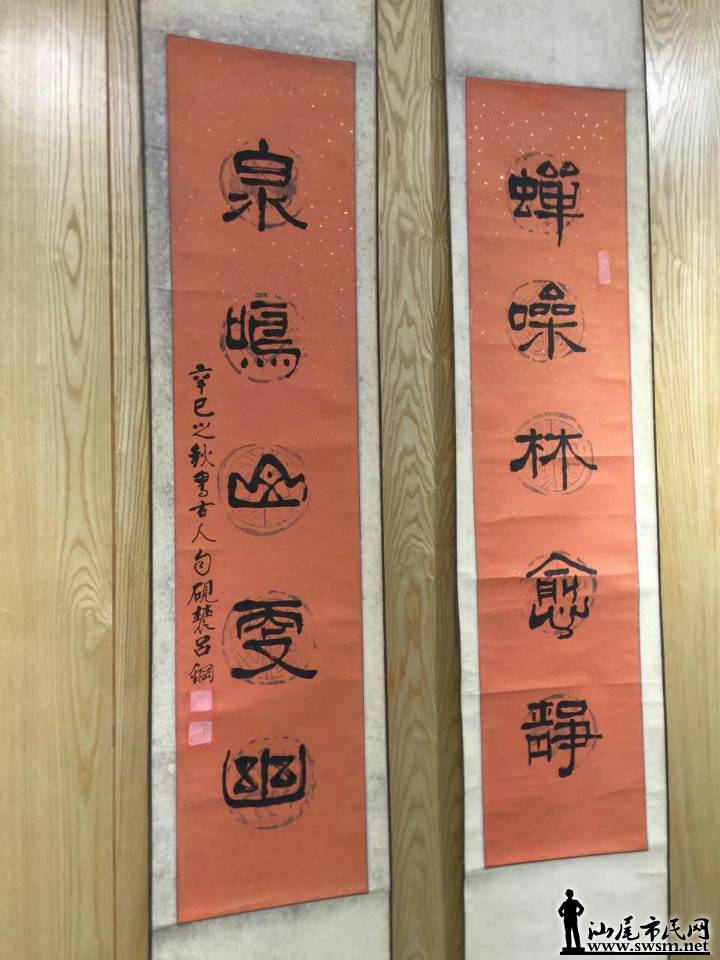 蟬噪林愈静
泉鳴山更幽
辛巳之秋書古人句硯農吕鋼
汕尾市民网
www.swsm.net